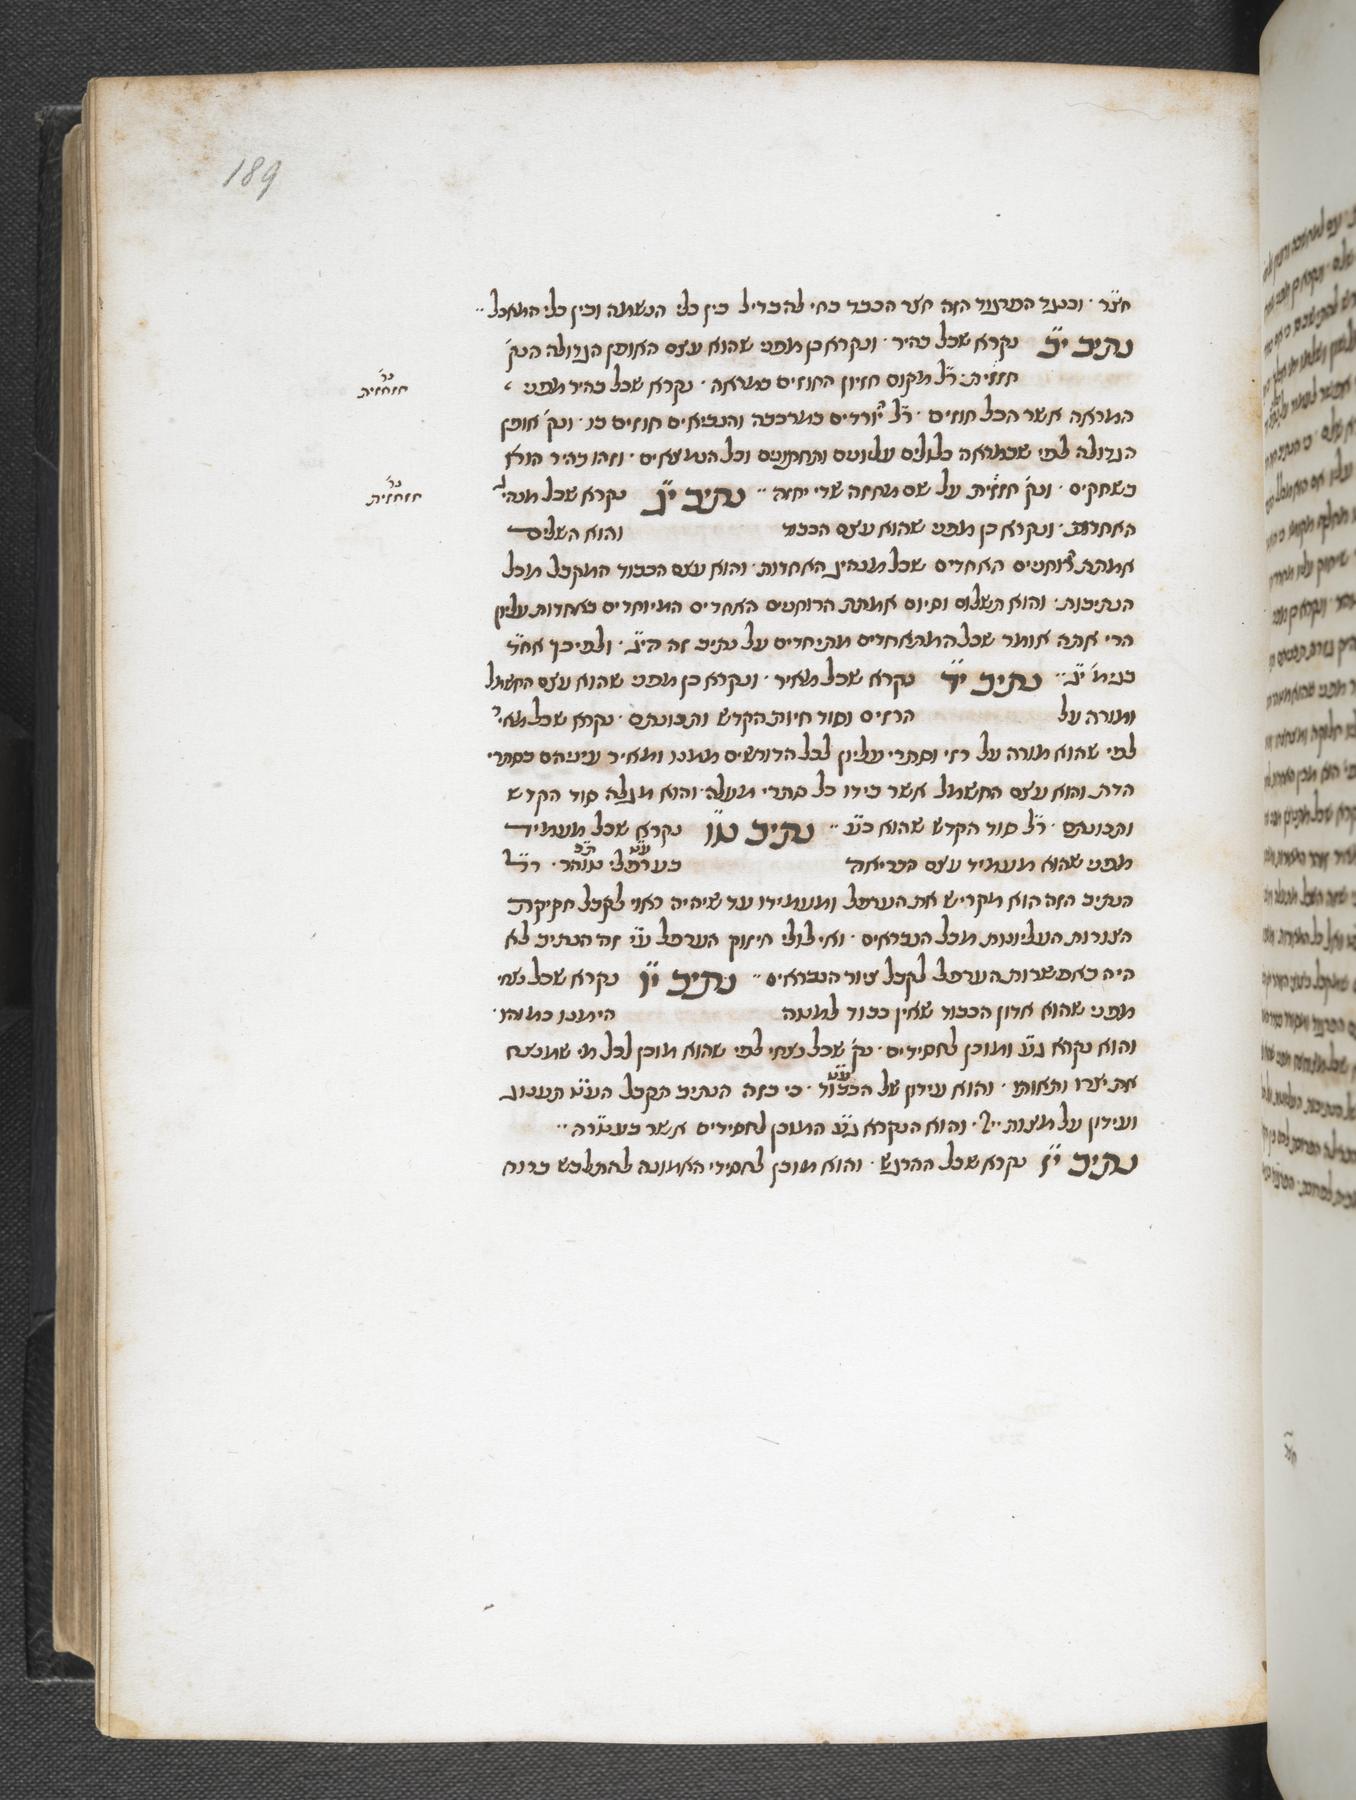 189
חצר · וכנגד הפרגוד הזה חצר הכבד בחי להבדיל בין כלי הנשמה ובין כלי המאכל ··
נתיב י״ב נקרא שכל בהיר · ונקרא כן מפני שהוא עצם האופן הגדולה הנק׳
חזזית · ר״ל מקום חזיון החוזים במראה · נקרא שכל בהיר מפני
נר׳ חזחזית
המראה אשר הכל חוזים · ר״ל יורדים במרכבה והנביאים חוזים בו · ונק׳ אופן
הגדולה לפי שבמראה כלולים עליונים ותחתונים וכל הנמצאים · וזהו בהיר הוא
בשחקים · ונק׳ חזזית על שם מחזה שדי יחזה ·· נתיב י״ג נקרא שכל מנהי׳
נר׳ חזחזית
האחדות · ונקרא כן מפני שהוא עצם הכבוד והוא השלים
אמתת רוחניים האחדים שכל מנהיג האחדות · והוא עצם הכבוד המקבל מכל
הנתיבות · והוא תשלום וסיום אמתת הרוחניים האחדים המיוחדים באחדות עליון
הרי אתה אומר שכל המתאחדים מתיחדים על נתיב זה הי״ג · ולפיכך אח״ד
בגימ׳ י״ג ·· נתיב י״ד נקרא שכל מאיר · ונקרא כן מפני שהוא עצם החשמל
ומורה על הרזים וסוד חיות הקדש ותכונתם · נקרא שכל מאי׳
לפי שהוא מורה על רזי וסתרי עליון לכל הדורשים ממנו ומאיר עיניהם בסתרי
הדת והוא עצם החשמל אשר בידו כל סתרי מעלה · והוא מגלה סוד הקדש
ותכונתם · ר״ל סוד הקדש שהוא כ״ע ·· נתיב ט״ו נקרא שכל מעמיד
מפני שהוא מעמיד עצם הבריאה בערפלי טוהר · ר״ל
הנתיב הזה הוא מקריש את הערפל ומעמידו עד שיהיה ראוי לקבל חקיקת
הצורות העליונות מכל הנבראים · ואי לולי חיזוק הערפל ע״י זה הנתיב לא
היה באפשרות הערפל לקבל ציור הנבראים ·· נתיב י״ו נקרא שכל נצחי
מפני שהוא אדון הכבוד שאין כבוד למטה הימנו כמוהו ·
והוא נקרא ג״ע ומוכן לחסידים · נק׳ שכל נצחי לפי שהוא מוכן לכל מי שמנצח
את יצרו ותאותו · והוא עידון של הכבוד · כי בזה הנתיב תקבל הע״ט תענוג
ועידון על מצות · והוא הנקרא ג״ע המוכן לחסידים אשר בעט״רה ··
נתיב י״ז נקרא שכל ההרגש · והוא מוכן לחסידי האמונה להתלבש ברוח